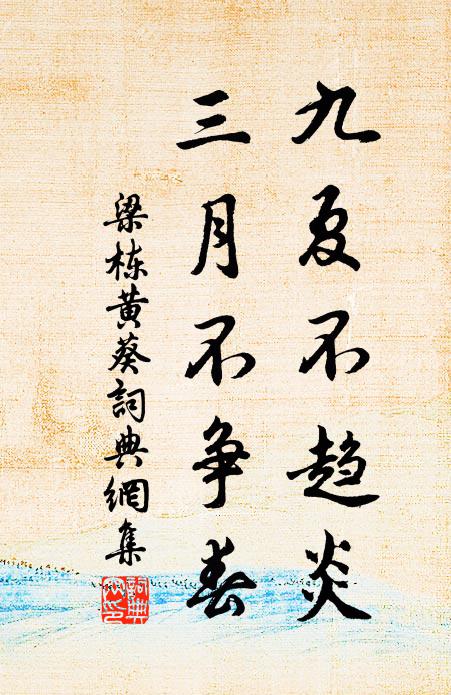 九夏不趋炎
三月不争春
梁栋黄葵詞典網集